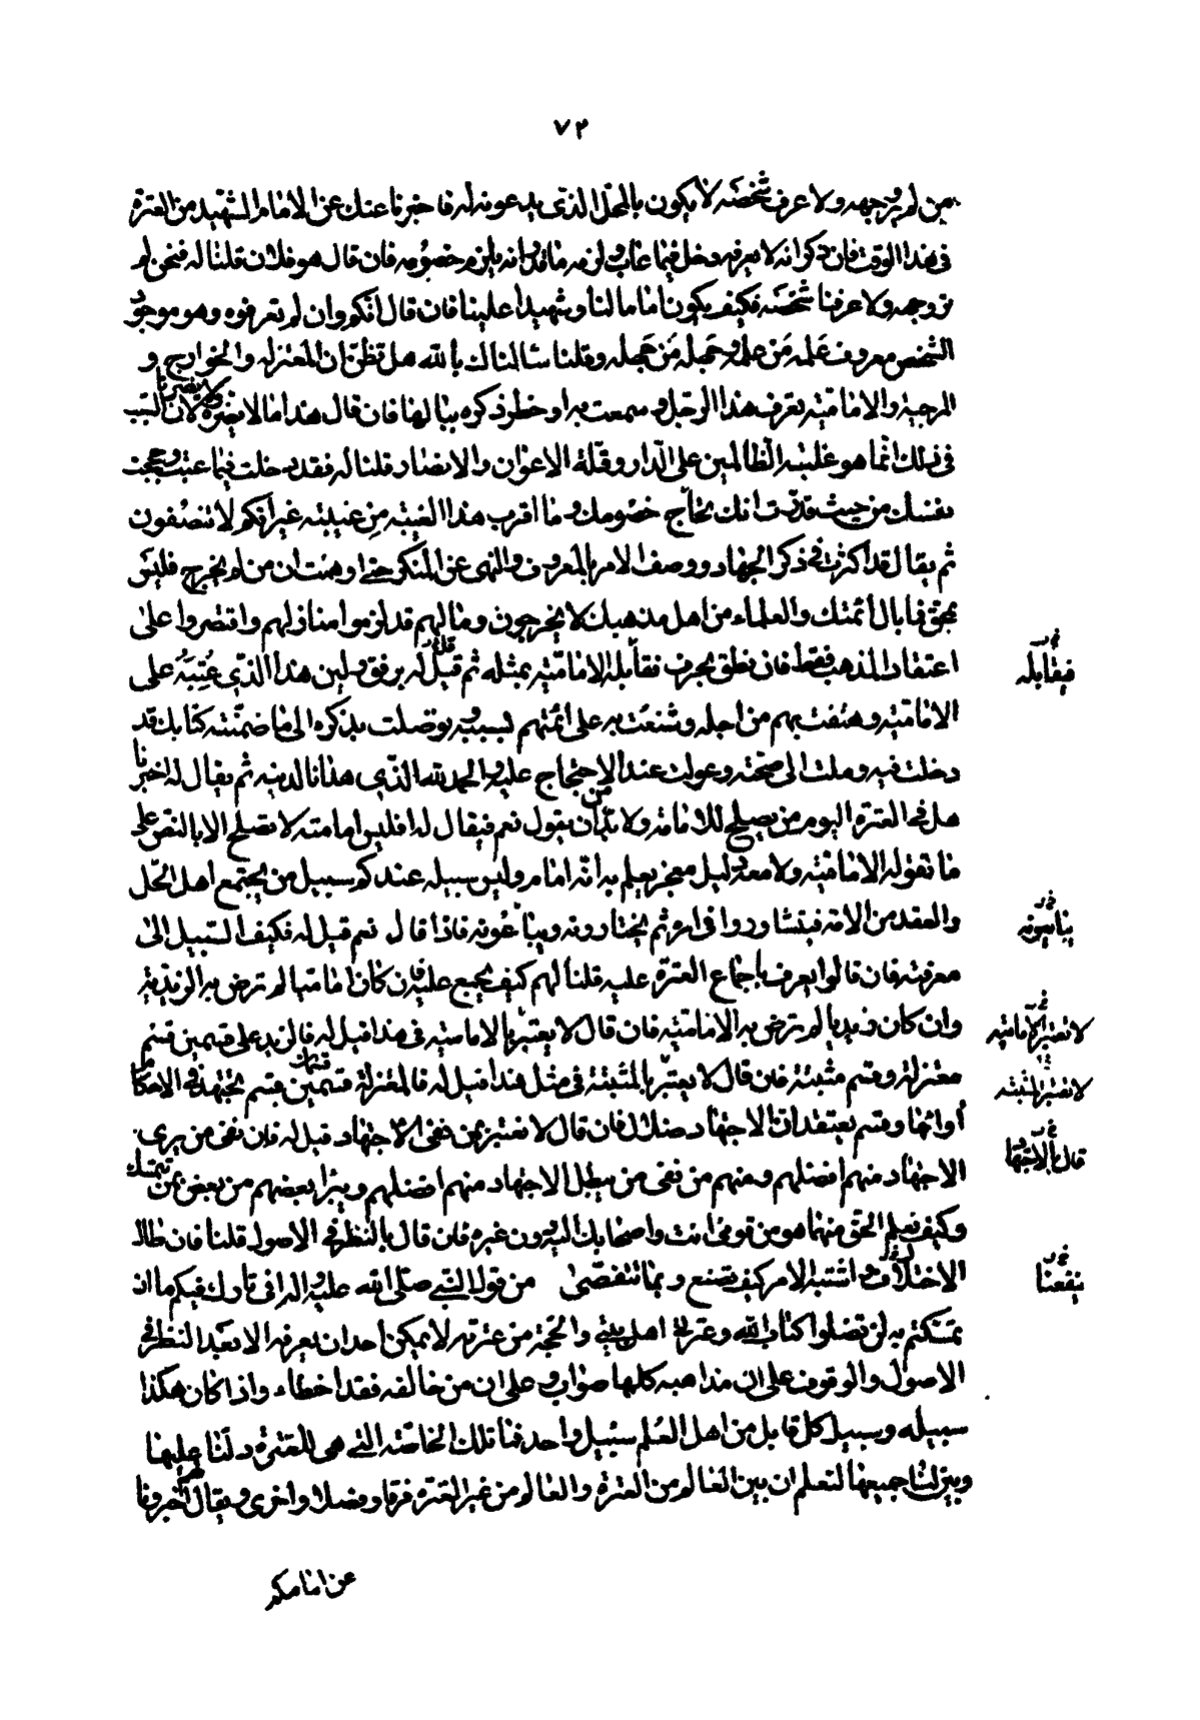 ٧٢
بمن لم ير وجهه ولا عرف شخصه لا يكون بالمحل الذي يدعونه له فاخبرنا عنك عن الامام الشهيد من العترة
في هذا الوقت فان ذكر انه لا يعرفه دخل فيما عاب ولزمه ما قدر انه يلزم خصومه فان قال هو فلان قلنا له فنحن لم
نر وجهه ولا عرفنا شخصه فكيف يكون اماما لنا وشهيدا علينا فان قال انكم وان لم تعرفوه وهو موجود
الشخص معروف علمه من علمه وجهله من جهله قلنا سالناك بالله هل تظن ان المعتزله والخوارج و
المرجية والامامية تعرف هذا الرجل او سمعت به او خطر ذكره ببالها فان قال هذا ما لا يضره ولا يضرنا لان السبب
في ذلك انما هو غلبة الظالمين على الدار وقلة الاعوان والانصار قلنا له فقد دخلت فيما عبت وحججت
نفسك من حيث قدرت انك تحاج خصومك وما اقرب هذا الغيبة من غيبته غير انكم لا تنصفون
ثم يقال قد اكثرت في ذكر الجهاد ووصف الامر بالمعروف والنهي عن المنكر حتى اوهمت ان من لم يخرج فليس
بمحق فما بال ائمتك والعلماء من اهل مذهبك لا يخرجون وما لهم قد لزموا منازلهم واقتصروا على
اعتقاد المذهب فقط فان نطق بحرف فقابله الامامية بمثله ثم قيل له برفق ولين هذا الذي عتبته على
فيقابله
الامامية وهتفت بهم من اجله وشنعت به على ائمتهم بسببه وتوصلت بذكره الى ما ضمنته كتابك قد
دخلت فيه وملت الى صحته وعولت عند الاحتجاج عليه والحمد لله الذي هدانا لدينه ثم يقال له اخبرنا
هل في العترة اليوم من يصلح للامامة ولا بد من ان يقول نعم فيقال له افليس امامته لا تصلح الا بالنص على
ما تقوله الامامية ولا معه دليل معجز يعلم به انه امام وليس سبيله عندكم سبيل من يجتمع اهل الحل
والعقد من الامة فيتشاوروا في امره ثم يختارونه ويبايعونه فاذا قال نعم قيل له فكيف السبيل الى
معرفته فان قالوا يعرف باجماع العترة عليه قلنا لهم كيف يجمع عليه فان كان اماميا لم ترض به الزيدية
وان كان زيديا لم ترض به الامامية فان قال لا يعتبر بالامامية في هذا قيل له فالزيدية على قسمين قسم
لا تعتبر الامامية
معتزلة وقسم مثبتة فان قال لا يعتبر بالمثبتة في مثل هذا قيل له فالمعتزلة قسمين قسم يجتهد في الاحكام
لا تعتبر المثبته
بآرائها وقسم يعتقد ان الاجتهاد ضلال فان قال لا نعتبر بمن نفى الاجتهاد قيل له فان بقى ممن يرى
قال بالاجتهاد
الاجتهاد منهم افضلهم ومنهم من بقى ممن يبطل الاجتهاد منهم افضلهم ويبرا بعضهم من بعض بمن نتمسك
وكيف نعلم الحق منهما هو من تومى انت واصحابك اليه دون غيره فان قال بالنظر في الاصول قلنا فان طال
الاختلاف واشتبه الامر كيف نصنع وبما نتفصى من قول النبي صلى الله عليه واله اني تارك فيكم ما ان
ينفعنا
تمسكتم به لن تضلوا كتاب الله وعترتي اهل بيتي والحجة من عترته لا يمكن احد ان يعرفه الا بعد النظر في
الاصول والوقوف على ان مذاهبه كلها صواب وعلى ان من خالفه فقد اخطاء واذا كان هكذا
سبيله وسبيل كل قايل من اهل العلم سبيل واحد فما تلك الخاصة التي هي للعترة دلنا عليها
وبين لنا جميعها لنعلم ان بين العالم من العترة والعالم من غير العترة فرقا وفضلا واخرى ويقال لهم اخبرونا
عن امامكم